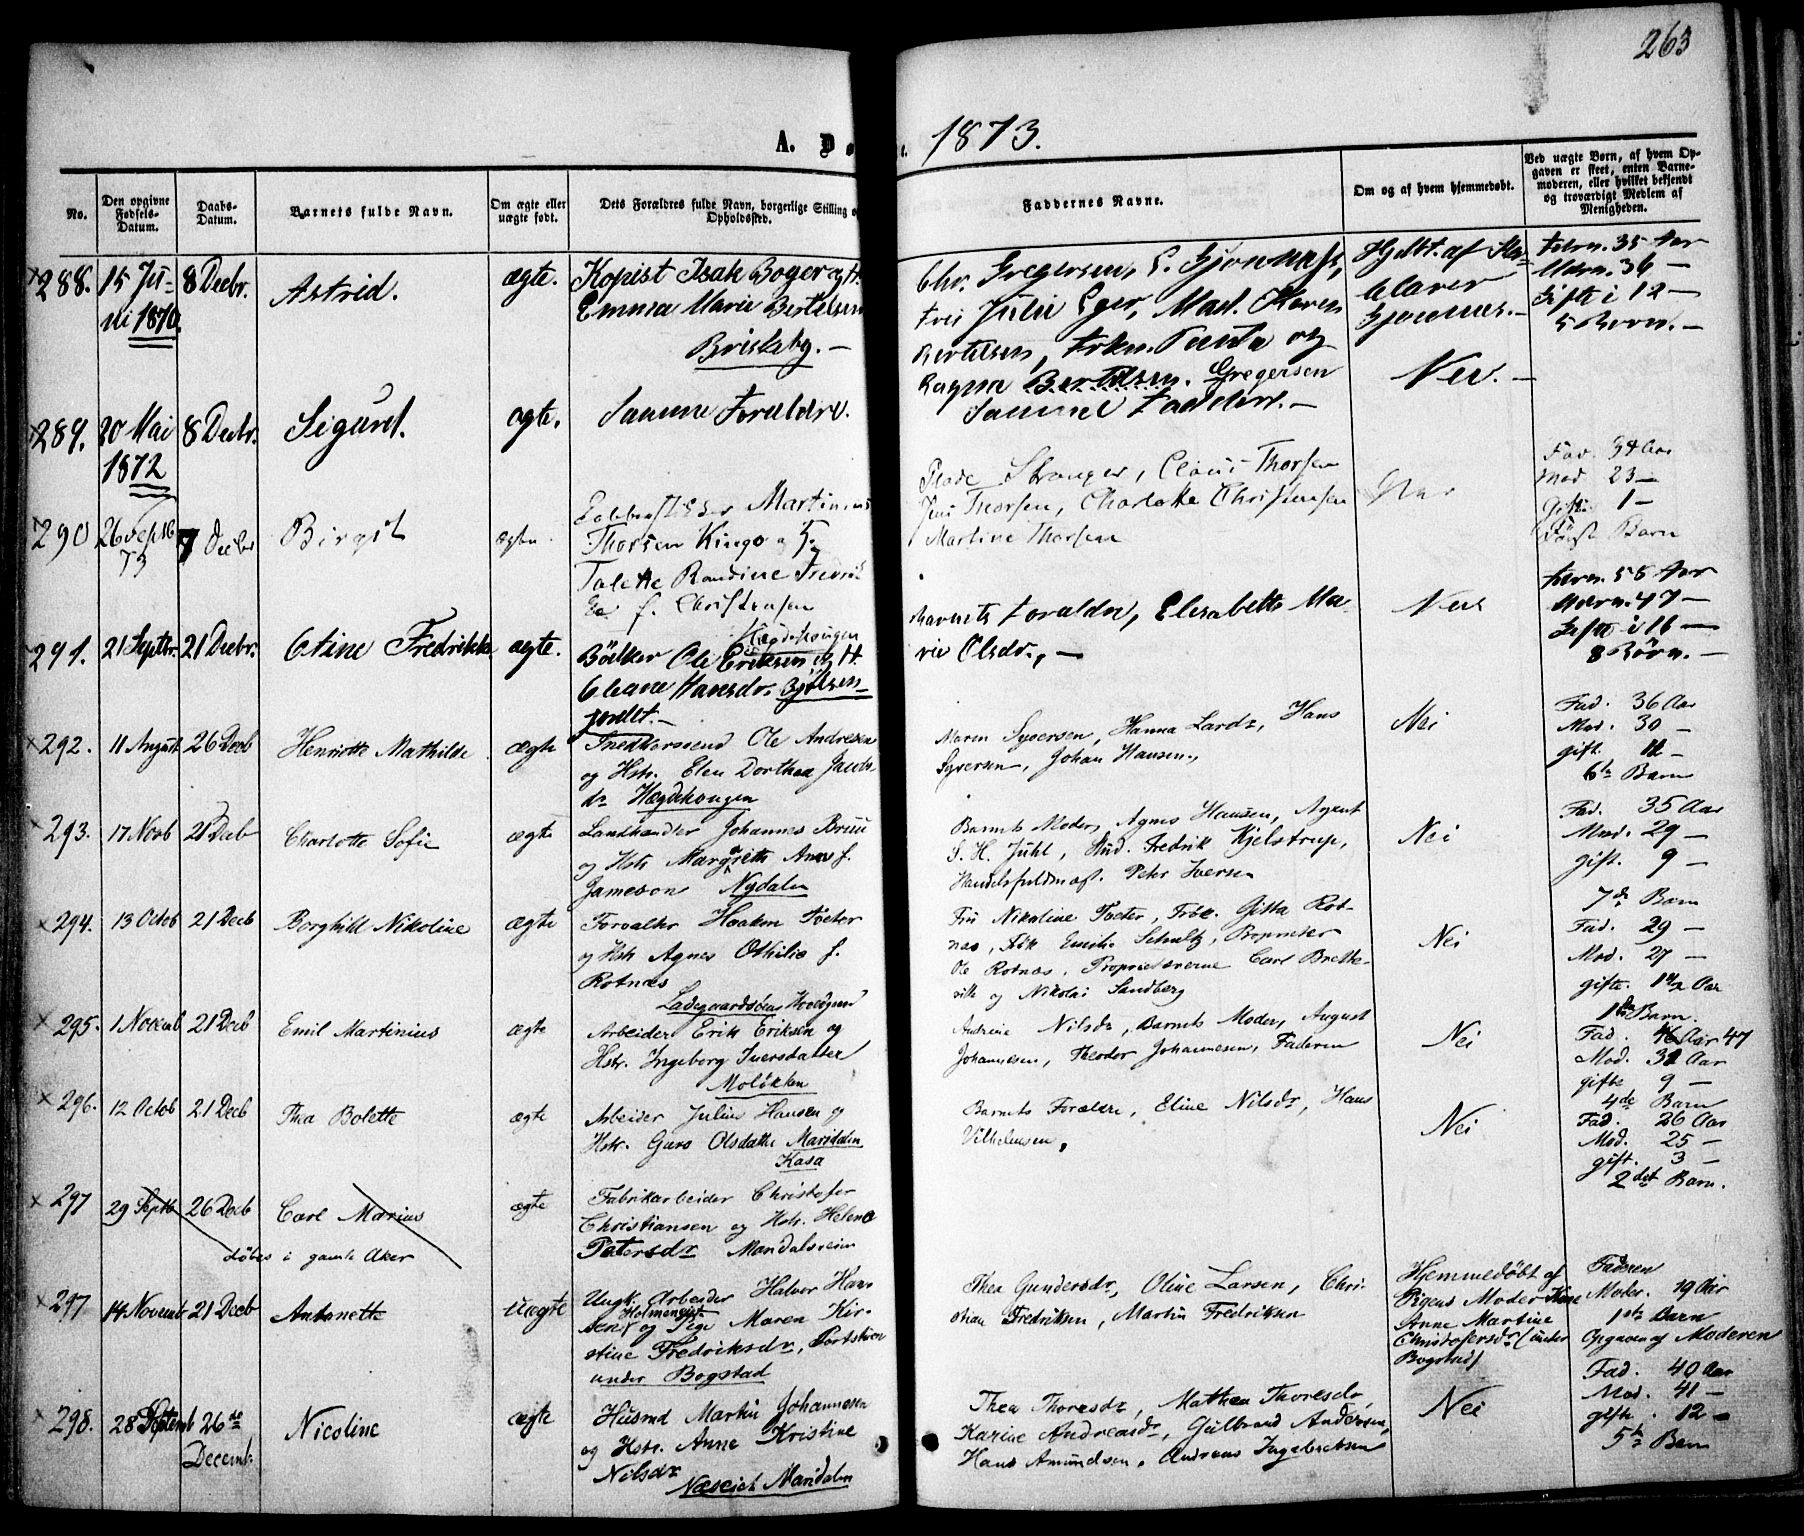 263
A. Dø e. 1873.
No.
Den opgivne Fødsels-Datum.
Daabs-Datum.
Barnets fulde Navn.
Om ægte eller uægte født.
Dets Forældres fulde Navn, borgerlige Stilling o
Opholdssted.
Faddernes Navne.
Om og af hvem hjemmedøbt.
Ved uægte Børn, af hvem Op-
gaven er skeet, enten Barne-
moderen, eller hvilket bekjendt
og troværdigt Medlem af
Menigheden.
288. 15 Ju- 8 Decbr. Astrid. ægte. Kopist Isak Boger og H.
ni 1870. Emma Marie Bertelsen
Briskeby. —
Chr. Gregersen,
Fru Julie Eger, Mad. Karen
Bertelsen, Frkn. og
Ragna Bertelsen. Gregersen
Hjdbt. af
Nei. —
Farn. 35 Aar
Modrn. 36 —
Gifte i 12 —
5 Børn. —
289. 20 Mai 8 Decbr. Sigurd. ægte. Samme Forældre.
1872
Samme Faddere. —
290 26 Sept 7 Decbr Birgit ægte. Martinius
73 Thorsen Kingo og H.
Talette Randine Fredrik
f. Christensen
Stranger, Claus Thorsen
Jens Thorsen, Charlotte Christensen
Martine Thorsen
Fad. 34 Aar
Mod 23 —
Gifte 1 —
Første Barn
291. 21 Septbr. 21 Decbr. Stine Fredrikke ægte. Bødker Ole Eriksen og H.
Hægdehougen
Oleane Hansdr. Bjølsen-
jordet. —
Barnets Forældre, Elisabeth Ma-
rie Olsdr., —
Nei
Farn. 55 Aar
Modrn. 47 —
Gifte i 16 —
8 Børn. —
292. 11 August 26 Decb Henriette Mathilde ægte Snedkersvend Ole Andresen
og Hstr. Elen Dorthea Jacobs-
dr Hægdehougen
Maren Syversen, Hanna Larsdr, Hans
Syversen, Johan Hansen.
Nei
Fad. 36 Aar
Mod. 30 —
gift. 12 —
6te Barn
293. 17 Novb 21 Decb Charlotte Sofie ægte Landhandler Johannes Bruu
og Hstr Margrethe Anna f.
Jameson Nydalen
Barnets Moder, Agnes Hansen, Agent
S. H. Juhl, Stud. Fredrik Kjelstrup,
Handelsfuldmægt. Peter Iversen
Nei
Fad. 35 Aar
Mod. 29 —
gift. 9 —
7de Barn
294. 13 Octob 21 Decb Borghild Nikoline ægte Forvalter Haaken Tveter
og Hstr Agnes Othilie f.
Rotnæs
Ladegaardsøens Hovedgaard
Fru Nikoline Tveter, Frøk. Gitta Rot-
næs, Frk Emilie Schultz, Proprietær
Ole Rotnæs, Proprietærerne Carl Brette-
ville og Nikolai Sandberg
Nei
Fad. 29 —
Mod. 27 —
gifte. 1 1/2 Aar
1ste Barn.
295. 1 Novemb 21 Decb Emil Martinius ægte Arbeider Erik Eriksen og
Hstr. Ingeborg Iversdatter
Moløkken
Andrine Nilsdr, Barnets Moder, August
Johannesen, Theodor Johannesen, Faderen
Nei
Fad. 46 Aar 47
Mod. 32 Aar
gifte 9 —
4de Barn
296. 12 Octob 21 Decb Thea Bolette ægte Arbeider Julius Hansen og
Hstr. Guro Olsdatter Maridalen
Kasa
Barnets Forældre, Eline Nilsdr, Hans
Vilhelmsen,
Nei
Fad. 26 Aar
Mod. 25 —
gift. 3 —
2det Barn.
297 29 Septb 26 Decb Carl Marius ægte Fabrikarbeider Christofer
Christiansen og Hstr. Helene
Petersdr Mandalsveien
døbes i gamle Aker
297 14 Novemb 21 Decb Antonette uægte Ungk. Arbeider Halvor Han-
sen Holmengjet og Pige Maren Kir-
stine Fredriksdr, Portstuen
under Bogstad
Thea Gundersdr, Oline Larsen, Chri-
stian Fredriksen, Martin Fredriksen
Hjemmedøbt af
Pigens Moder Kone
Anne Martine
Christofersdr (under
Bogstad)
Faderen
Moder. 19 Aar
1ste Barn
Opgaven af Moderen
298. 28 Septemb 26de Nicoline ægte Husmd Martin Johannesen
Decemb. og Hstr. Anne Kristine
Nilsdr
Næseiet Maridalen
Thea Thoresdr, Mathea Thoresdr,
Karine Andreasdr, Gulbrand Andersen,
Hans Amundsen, Andreas Ingebretsen
Nei
Fad. 40 Aar
Mod. 41 —
gifte. 12 —
5te Barn